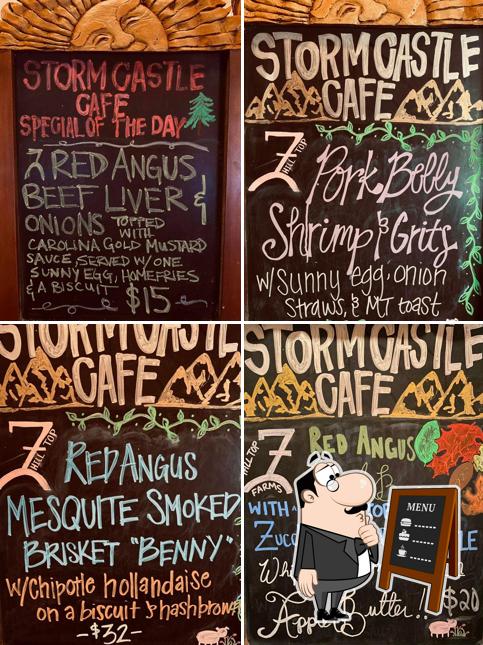 STORM CASTLE
CAFE
SPECIAL OF THE DAY
7 RED ANGUS
BEEF LIVER &
ONIONS TOPPED
WITH
CAROLINA GOLD MUSTARD
SAUCE, SERVED W/ ONE
SUNNY EGG, HOMEFRIES
& A BISCUIT $15
STORM CASTLE
CAFE
7
HILL TOP
Pork Belly
Shrimp & Grits
w/ Sunny egg, onion
Straws, & MT toast
STORM CASTLE
CAFE
7
HILL TOP
RED ANGUS
MESQUITE SMOKED
BRISKET "BENNY"
w/ Chipotle hollandaise
on a biscuit & hashbrown
-$32-
STORM CASTLE
CAFE
7
HILL TOP
FARMS
RED ANGUS
WITH
MENU
$20
Butter!!